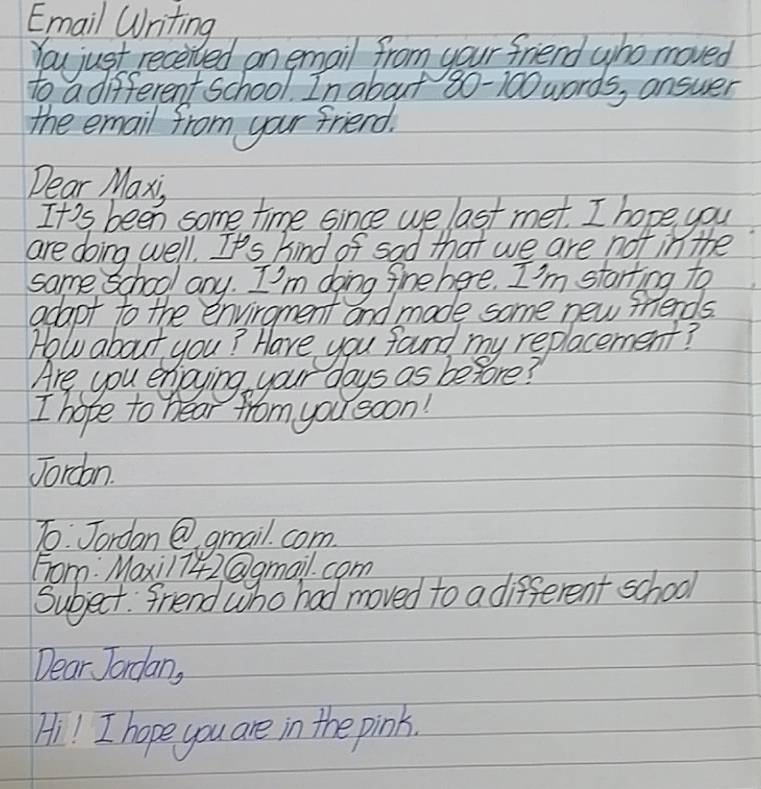 Email Writing
You just received an email from your friend who moved
to a different school. In about 80-100 words, answer
the email from your friend.
Dear Maxi,
It's been some time since we last met. I hope you
are doing well. It's kind of sad that we are not in the
same school any. I'm doing fine here. I'm starting to
adapt to the enviroment and made some new friends.
How about you? Have you found my replacement?
Are you enjoying your days as before?
I hope to hear from you soon!
Jordan.
To: Jordan@gmail.com.
From: Maxi1742@gmail.com
Subject: friend who had moved to a different school
Dear Jordan,
Hi! I hope you are in the pink.